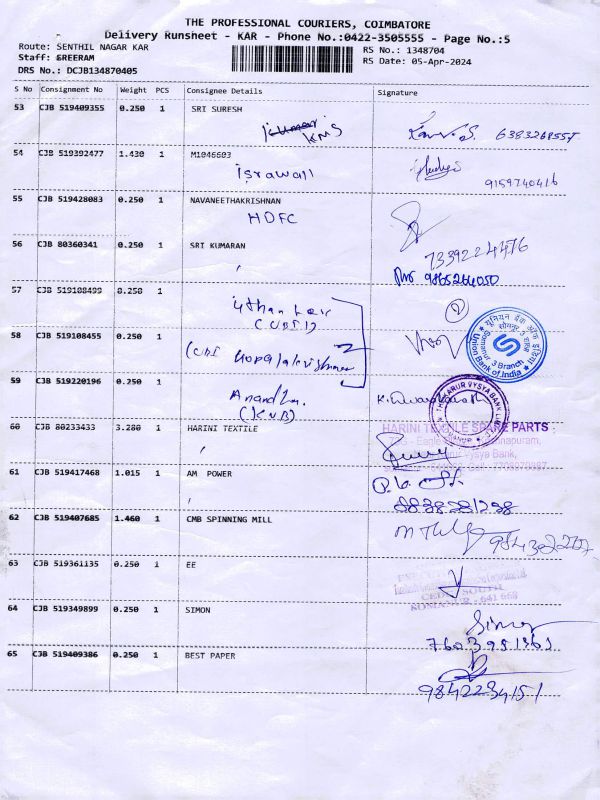 THE PROFESSIONAL COURIERS, COIMBATORE
Delivery Runsheet - KAR - Phone No.:0422-3505555 - Page No.:5
Route: SENTHIL NAGAR KAR
RS No.: 1348704
Staff: SREERAM
RS Date: 05-Apr-2024
DRS No.: DCJB134870405
S No Consignment No Weight PCS Consignee Details Signature
53 CJB 519409355 0.250 1 SRI SURESH
KMS
6383268557
54 CJB 519392477 1.430 1 M1046603
9159740416
55 CJB 519428083 0.250 1 NAVANEETHAKRISHNAN
HDFC
7339224476
56 CJB 80360341 0.250 1 SRI KUMARAN
9865264050
57 CJB 519108499 0.250 1
(CUBI)
2
58 CJB 519108455 0.250 1
(UBI Gopalakrishnan
यूनियन बैंक ऑफ इंडिया
Somanur Branch
Union Bank of India
59 CJB 519220196 0.250 1
Anandha
(KVB)
THE KARUR VYSYA BANK
60 CJB 80233433 3.280 1 HARINI TEXTILE
HARINI TEXTILE SPARE PARTS
Karur Vysya Bank,
61 CJB 519417468 1.015 1 AM POWER
8838281298
62 CJB 519407685 1.460 1 CMB SPINNING MILL
63 CJB 519361135 0.250 1 EE
SOMANUR - 641 668
64 CJB 519349899 0.250 1 SIMON
Simon
7603951361
65 CJB 519409386 0.250 1 BEST PAPER
9842234151